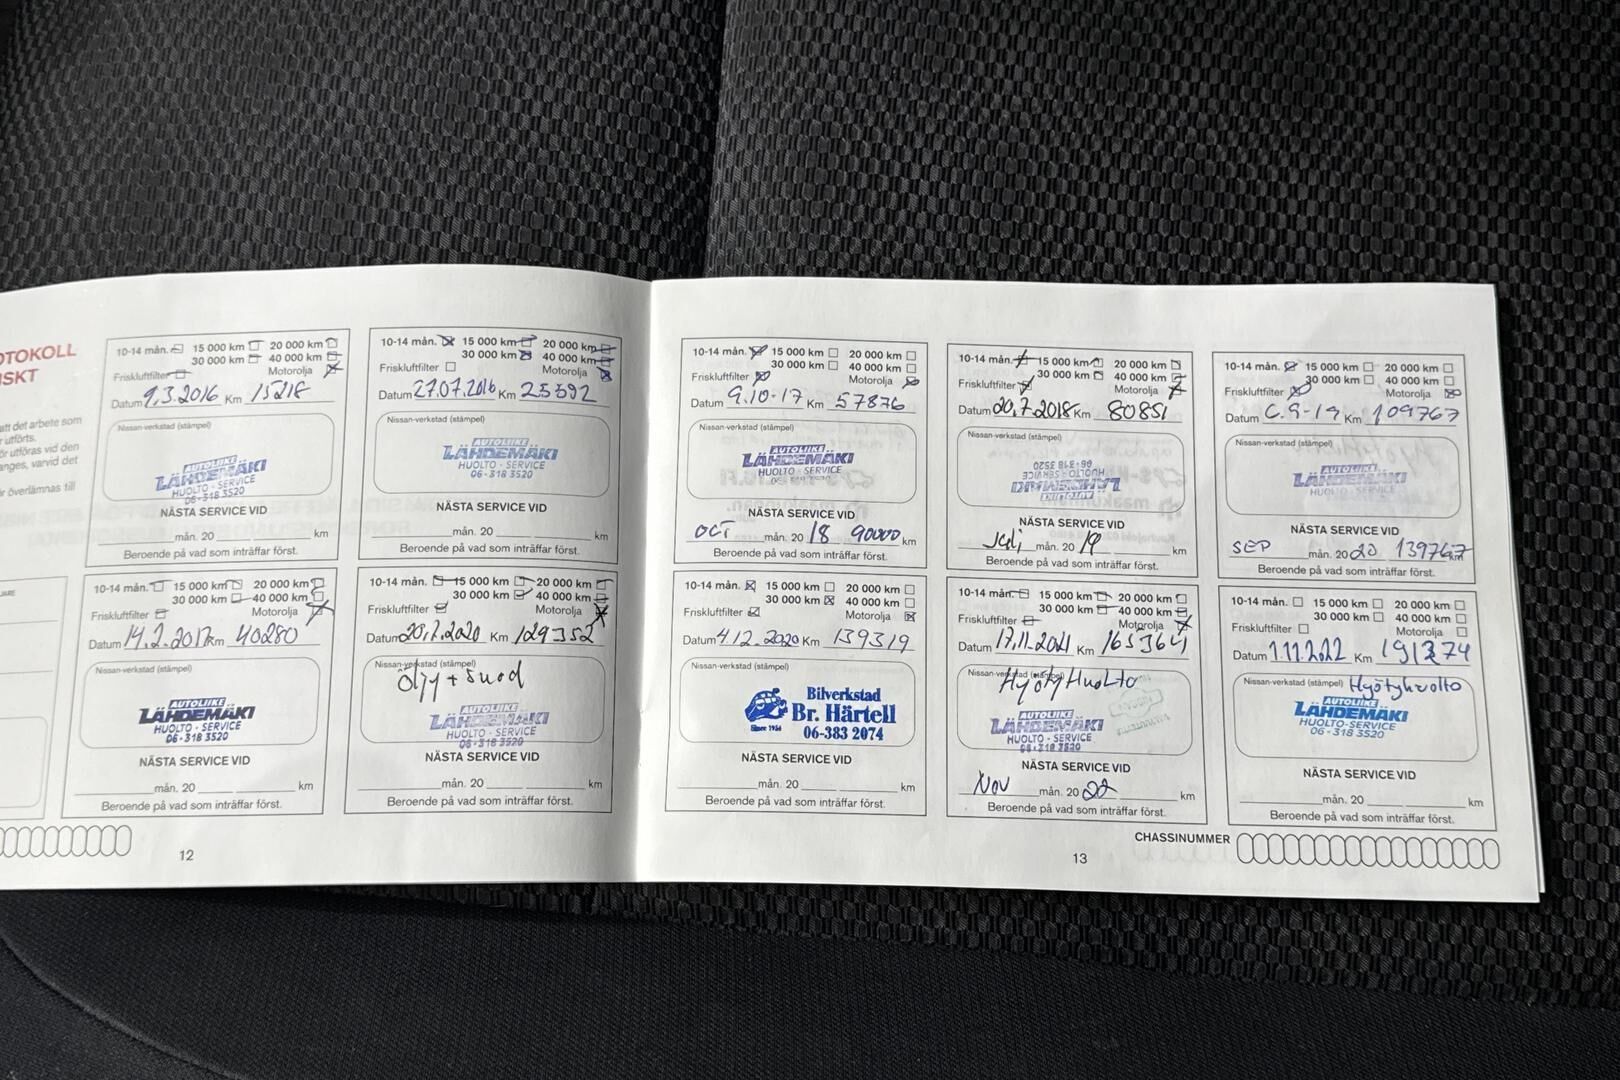 OTOKOLL
ISKT
att det arbete som
utförts.
ör utföras vid den
anges, varvid det
r överlämnas till
10-14 mån. 15 000 km 20 000 km
30 000 km 40 000 km
Friskluftfilter Motorolja
Datum 9.3.2016 Km 15218
Nissan-verkstad (stämpel)
AUTOLIIKE
LÄHDEMÄKI
HUOLTO - SERVICE
06-318 3520
NÄSTA SERVICE VID
mån. 20 km
Beroende på vad som inträffar först.
10-14 mån. 15 000 km 20 000 km
30 000 km 40 000 km
Friskluftfilter Motorolja
Datum 27.07.2016 Km 25592
Nissan-verkstad (stämpel)
AUTOLIIKE
LÄHDEMÄKI
HUOLTO - SERVICE
06-318 3520
NÄSTA SERVICE VID
mån. 20 km
Beroende på vad som inträffar först.
10-14 mån. 15 000 km 20 000 km
30 000 km 40 000 km
Friskluftfilter Motorolja
Datum 14.2.2017 Km 40280
Nissan-verkstad (stämpel)
AUTOLIIKE
LÄHDEMÄKI
HUOLTO - SERVICE
06-318 3520
NÄSTA SERVICE VID
mån. 20 km
Beroende på vad som inträffar först.
10-14 mån. 15 000 km 20 000 km
30 000 km 40 000 km
Friskluftfilter Motorolja
Datum 20.2.2020 Km 129352
Nissan-verkstad (stämpel)
Öljy + Suod
AUTOLIIKE
LÄHDEMÄKI
HUOLTO - SERVICE
06-318 3520
NÄSTA SERVICE VID
mån. 20 km
Beroende på vad som inträffar först.
12
10-14 mån. 15 000 km 20 000 km
30 000 km 40 000 km
Friskluftfilter Motorolja
Datum 9.10-17 Km 57876
Nissan-verkstad (stämpel)
AUTOLIIKE
LÄHDEMÄKI
HUOLTO - SERVICE
NÄSTA SERVICE VID
OCT mån. 20 18 90000 km
Beroende på vad som inträffar först.
10-14 mån. 15 000 km 20 000 km
30 000 km 40 000 km
Friskluftfilter Motorolja
Datum 20.7.2018 Km 80851
Nissan-verkstad (stämpel)
AUTOLIIKE
LÄHDEMÄKI
HUOLTO - SERVICE
06-318 3520
NÄSTA SERVICE VID
Juli mån. 20 19 km
Beroende på vad som inträffar först.
10-14 mån. 15 000 km 20 000 km
30 000 km 40 000 km
Friskluftfilter Motorolja
Datum 6.9-19 Km 109767
Nissan-verkstad (stämpel)
AUTOLIIKE
LÄHDEMÄKI
HUOLTO - SERVICE
NÄSTA SERVICE VID
SEP mån. 20 20 139767 km
Beroende på vad som inträffar först.
10-14 mån. 15 000 km 20 000 km
30 000 km 40 000 km
Friskluftfilter Motorolja
Datum 4.12.2020 Km 139319
Nissan-verkstad (stämpel)
Bilverkstad
Br. Härtell
Since 1934
06-383 2074
NÄSTA SERVICE VID
mån. 20 km
Beroende på vad som inträffar först.
10-14 mån. 15 000 km 20 000 km
30 000 km 40 000 km
Friskluftfilter Motorolja
Datum 17.11.2021 Km 165364
Nissan-verkstad (stämpel)
HyötyHuolto
AUTOLIIKE
LÄHDEMÄKI
HUOLTO - SERVICE
06-318 3520
NÄSTA SERVICE VID
Nov mån. 20 22 km
Beroende på vad som inträffar först.
10-14 mån. 15 000 km 20 000 km
30 000 km 40 000 km
Friskluftfilter Motorolja
Datum 1.11.2022 Km 191374
Nissan-verkstad (stämpel) Hyötyhuolto
AUTOLIIKE
LÄHDEMÄKI
HUOLTO-SERVICE
06-318 3520
NÄSTA SERVICE VID
mån. 20 km
Beroende på vad som inträffar först.
CHASSINUMMER
13